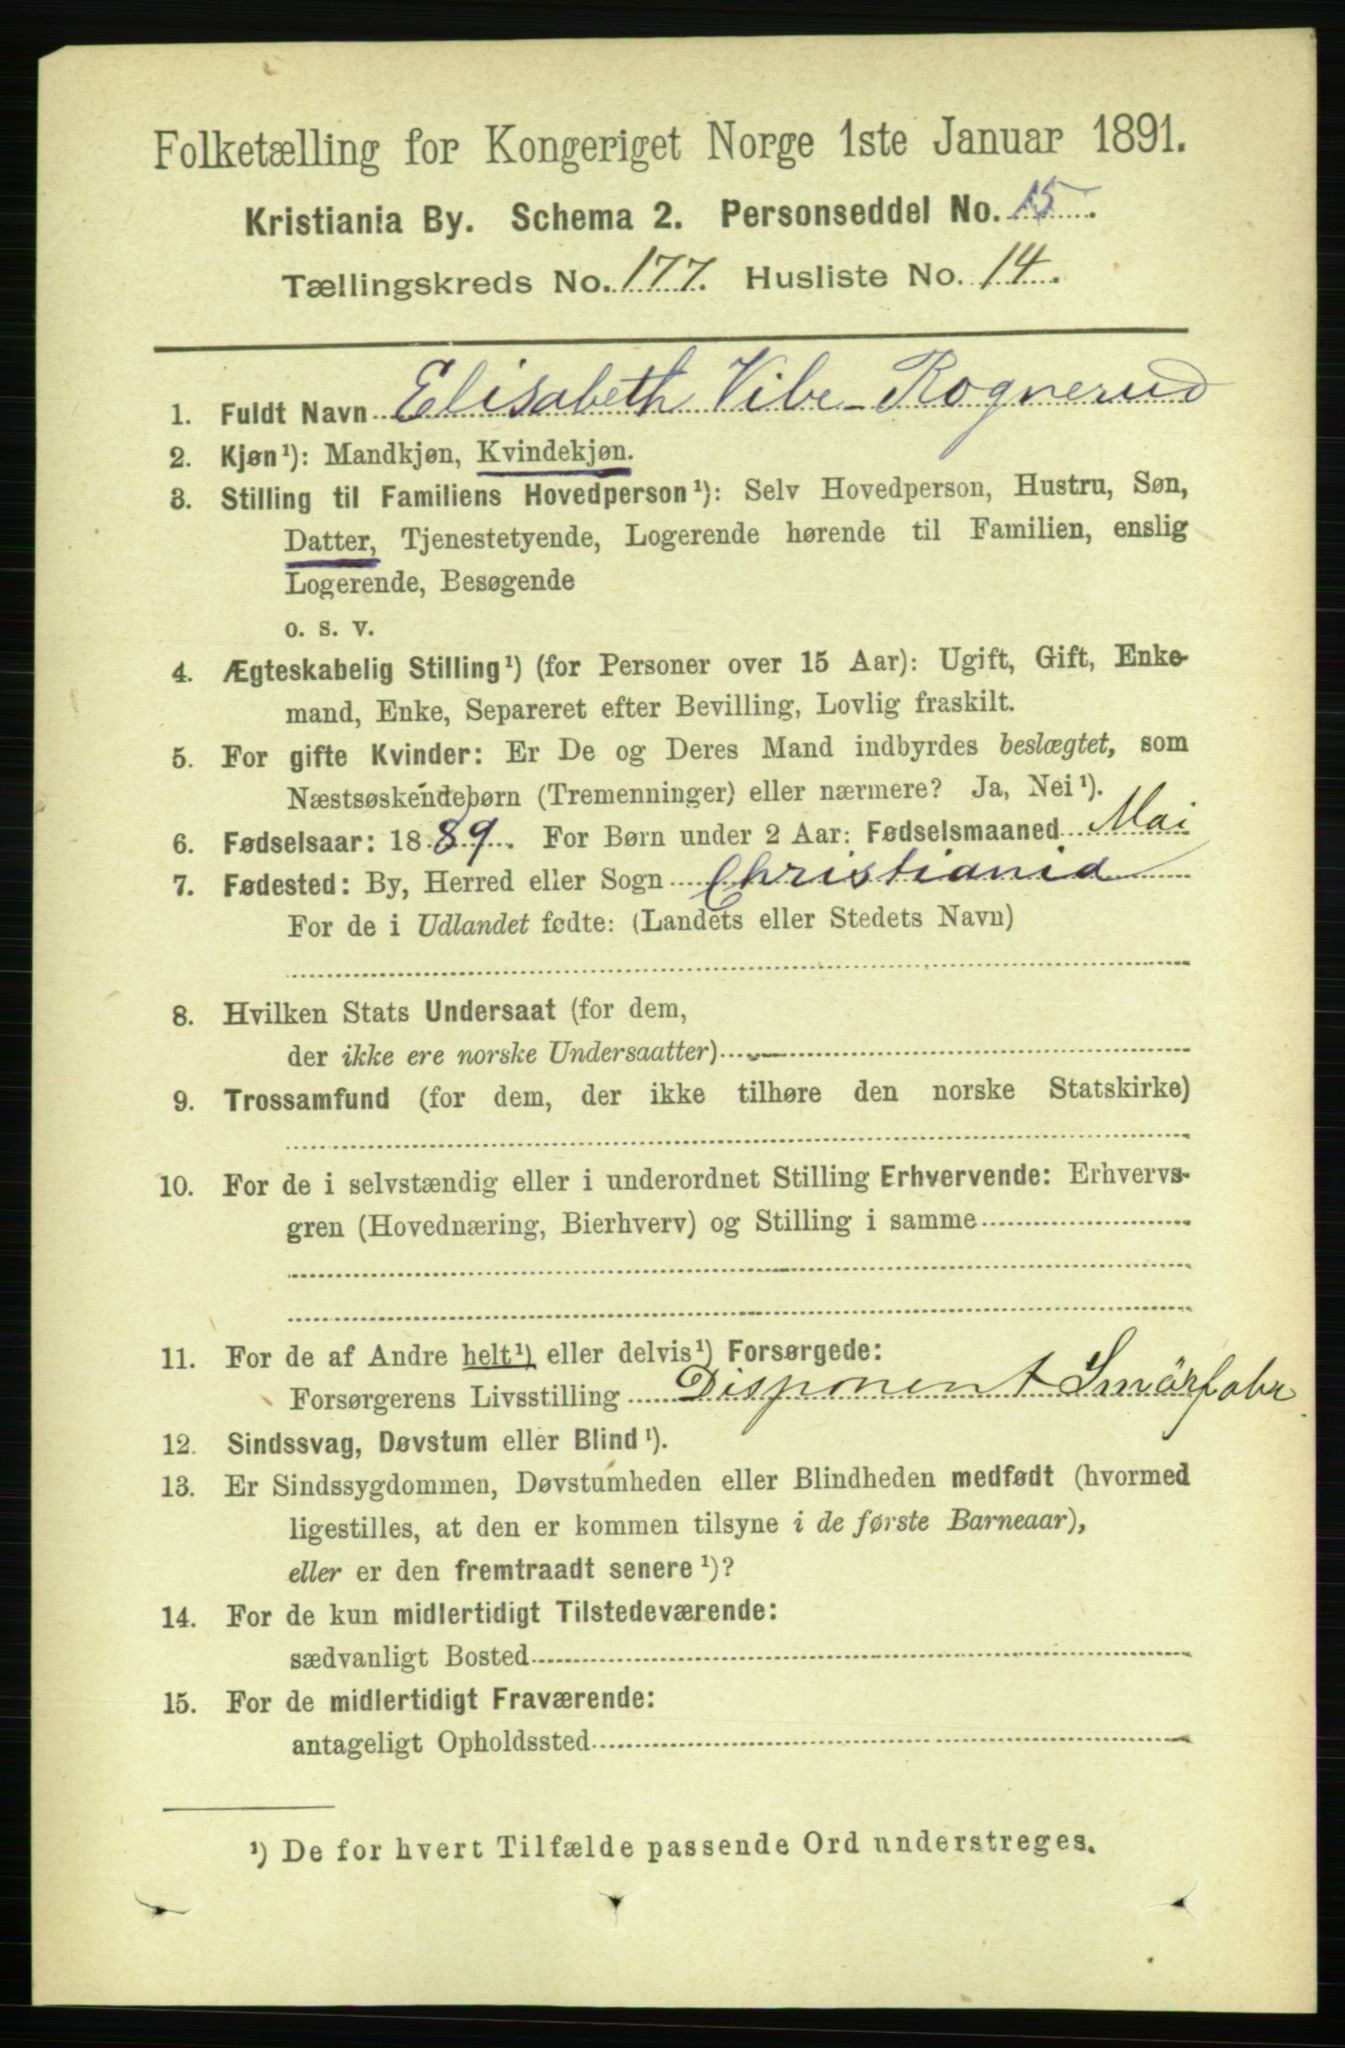 Folketælling for Kongeriget Norge 1ste Januar 1891.
Kristiania By. Schema 2. Personseddel No. 15.
Tællingskreds No. 177. Husliste No. 14.
1. Fuldt Navn Elisabeth Vibe-Rognerud
2. Kjøn¹): Mandkjøn, Kvindekjøn.
3. Stilling til Familiens Hovedperson¹): Selv Hovedperson, Hustru, Søn,
Datter, Tjenestetyende, Logerende hørende til Familien, enslig
Logerende, Besøgende
o. s. v.
4. Ægteskabelig Stilling¹) (for Personer over 15 Aar): Ugift, Gift, Enke-
mand, Enke, Separeret efter Bevilling, Lovlig fraskilt.
5. For gifte Kvinder: Er De og Deres Mand indbyrdes beslægtet, som
Næstsøskendebørn (Tremenninger) eller nærmere? Ja, Nei¹).
6. Fødselsaar: 1889. For Børn under 2 Aar: Fødselsmaaned Mai
7. Fødested: By, Herred eller Sogn Christiania
For de i Udlandet fødte: (Landets eller Stedets Navn)
8. Hvilken Stats Undersaat (for dem,
der ikke ere norske Undersaatter)
9. Trossamfund (for dem, der ikke tilhøre den norske Statskirke)
10. For de i selvstændig eller i underordnet Stilling Erhvervende: Erhvervs-
gren (Hovednæring, Bierhverv) og Stilling i samme
11. For de af Andre helt¹) eller delvis¹) Forsørgede:
Forsørgerens Livsstilling Disponent Smörfabr.
12. Sindssvag, Døvstum eller Blind¹).
13. Er Sindssygdommen, Døvstumheden eller Blindheden medfødt (hvormed
ligestilles, at den er kommen tilsyne i de første Barneaar),
eller er den fremtraadt senere¹)?
14. For de kun midlertidigt Tilstedeværende:
sædvanligt Bosted
15. For de midlertidigt Fraværende:
antageligt Opholdssted
¹) De for hvert Tilfælde passende Ord understreges.